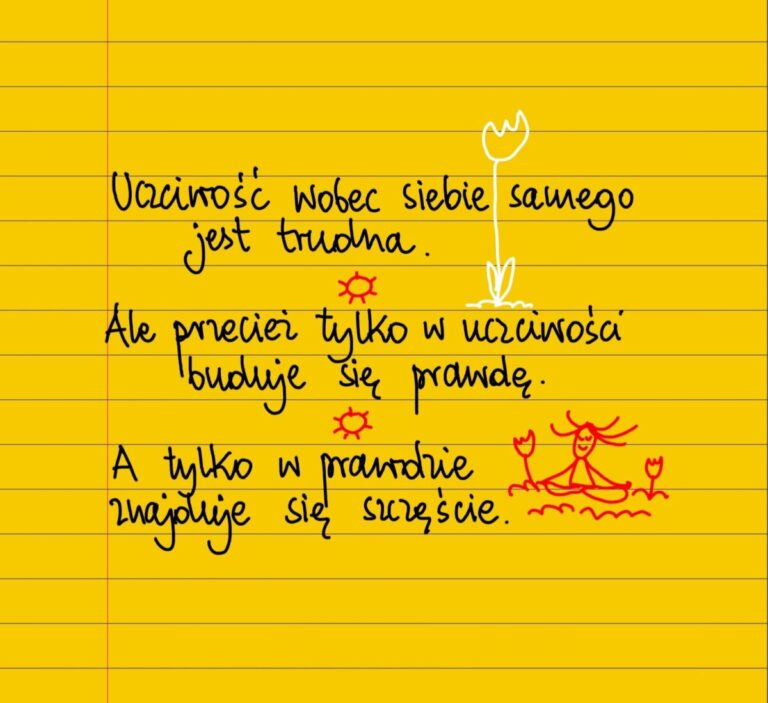 Uczciwość wobec siebie samego
jest trudna.
Ale przecież tylko w uczciwości
buduje się prawdę.
A tylko w prawdzie
znajduje się szczęście.